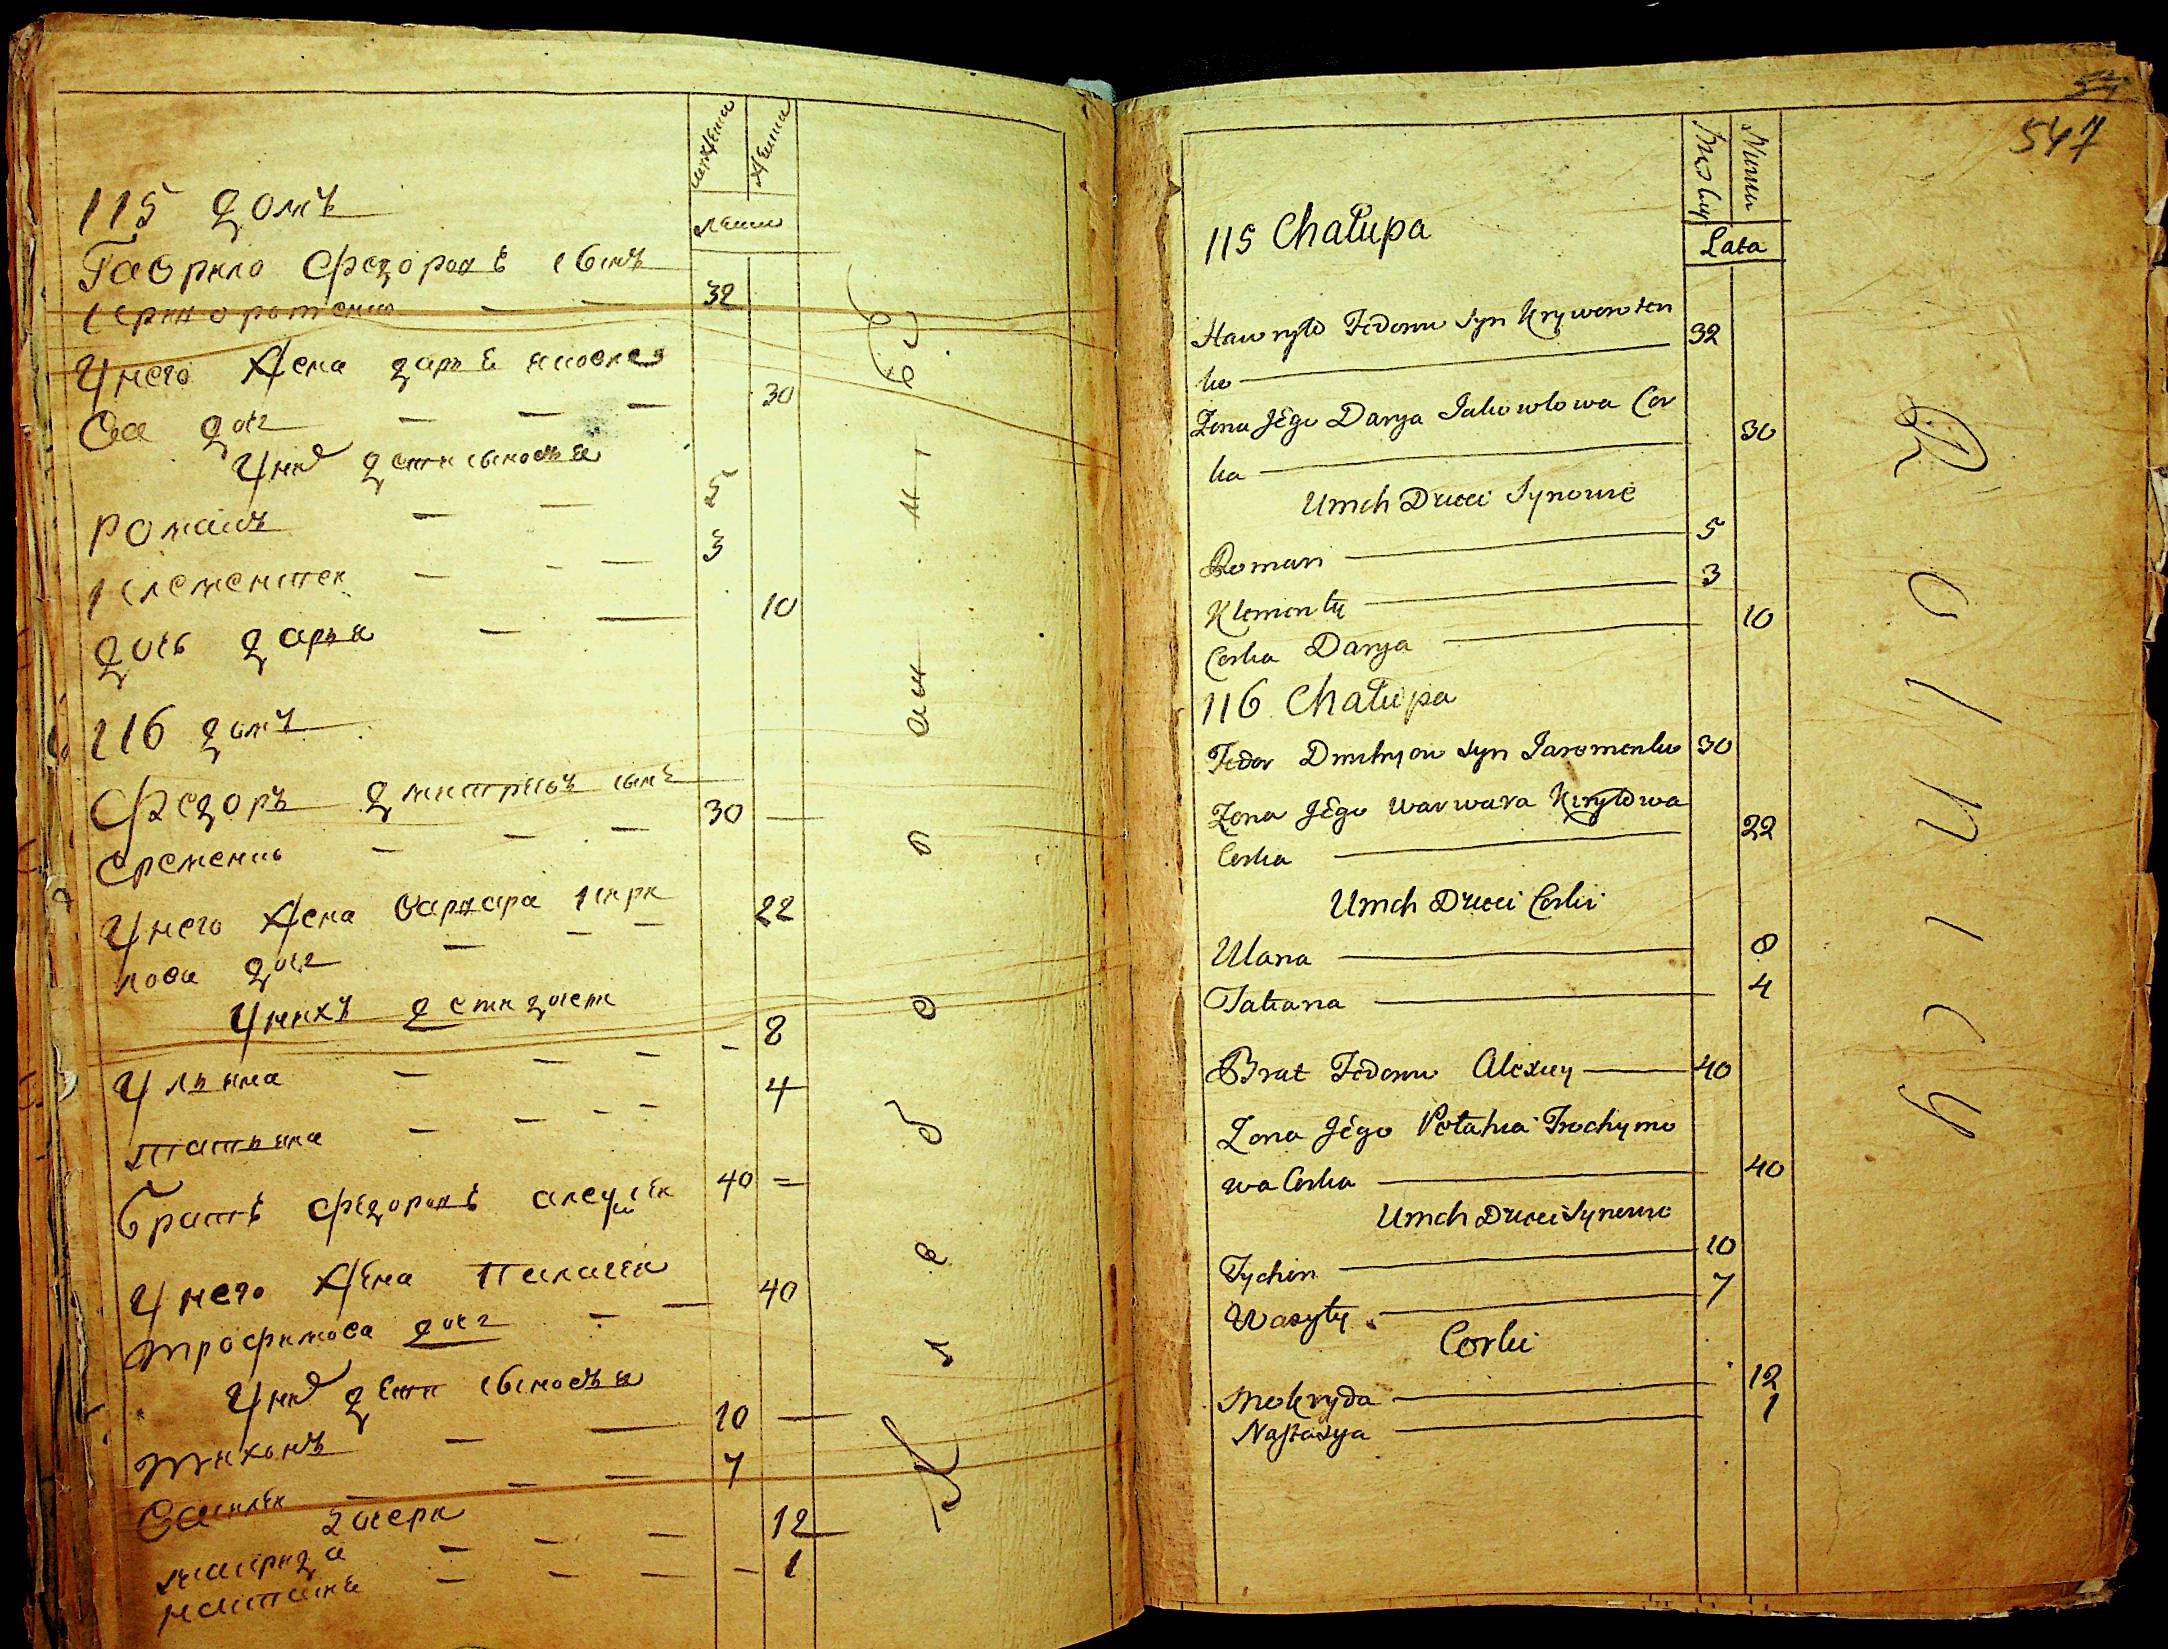 мужеска
женска
лета
115 домъ
Гаврило Федоровъ сынъ
Криворотенко 32
У него жена Дарья Яковле
ва доч 30
У них дети сыновья
Романъ 5
Клементей 3
дочь Дарья 10
116 домъ
Федоръ Дмитриевъ сынъ 30
Еременко
У него жена Варвара Кири
лова доч 22
У нихъ дети дочери
Ульяна 8
Татьяна 4
Братъ Федоровъ Алексей 40
У него жена Палагея
Трофимова доч 40
У них дети сыновья
Тихонъ 10
Василей 7
дочери
Макрида 12
Настасья 1
Хлебопашцы
547
Męzkiy
Lata
115 Chałupa
Hawryło Fedorow syn Kryworoten 32
ko
Żona Jego Darya Jakowlowa Cor
ka 30
U nich Dzieci Synowie
Roman 5
Klementy 3
Corka Darya 10
116 Chałupa
Fedor Dmitryow syn Jaromenko 30
Żona Jego Warwara Kiryłowa
Corka 22
U nich Dzieci Corki
Ulana 8
Tatiana 4
Brat Fedorow Alexiey 40
Żona Jego Pełahia Trochymo
wa Corka 40
U nich Dzieci Synowie
Tychon 10
Wasyly 7
Corki
Mokryda 12
Nastasya 1
Rolnicy